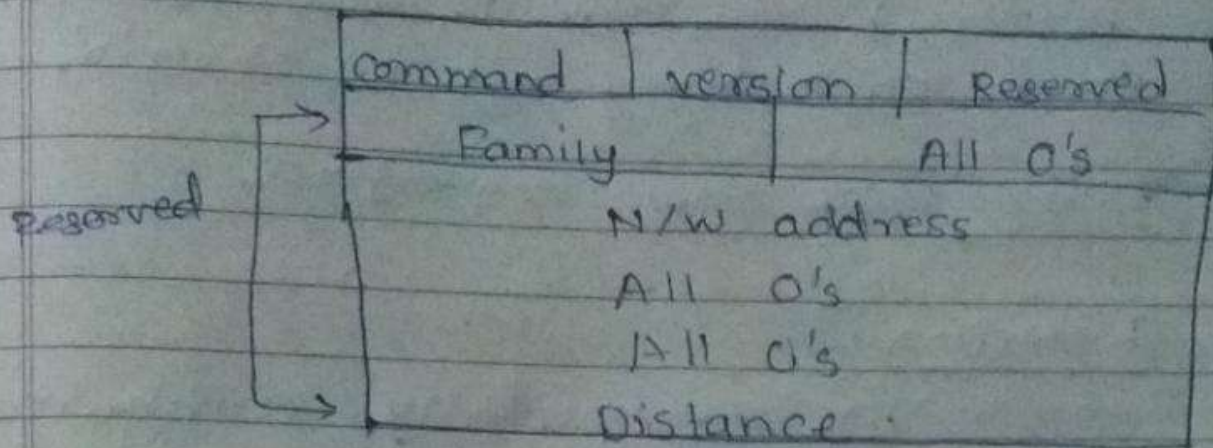 Command Version Reserved
Family All 0's
Reserved
N/W address
All 0's
All 0's
Distance